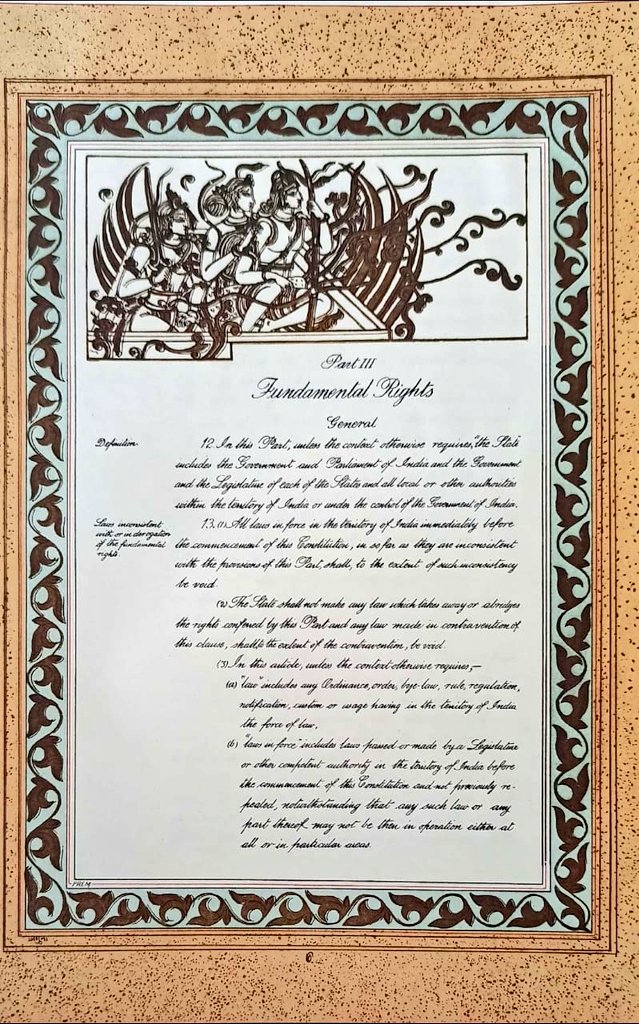 Part III
Fundamental Rights
General
Definition.
12. In this Part, unless the context otherwise requires, "the State
includes the Government and Parliament of India and the Government
and the Legislature of each of the States and all local or other authorities
within the territory of India or under the control of the Government of India.
Laws inconsistent
with or in derogation
of the fundamental
rights.
13. (1) All laws in force in the territory of India immediately before
the commencement of this Constitution, in so far as they are inconsistent
with the provisions of this Part, shall, to the extent of such inconsistency
be void.
(2) The State shall not make any law which takes away or abridges
the rights conferred by this Part and any law made in contravention of
this clause, shall, to the extent of the contravention, be void.
(3) In this article, unless the context otherwise requires,—
(a) "law" includes any Ordinance, order, bye-law, rule, regulation,
notification, custom or usage having in the territory of India
the force of law,
(b) "laws in force" includes laws passed or made by a Legislature
or other competent authority in the territory of India before
the commencement of this Constitution and not previously re-
pealed, notwithstanding that any such law or any
part thereof may not be then in operation either at
all or in particular areas.
PREM